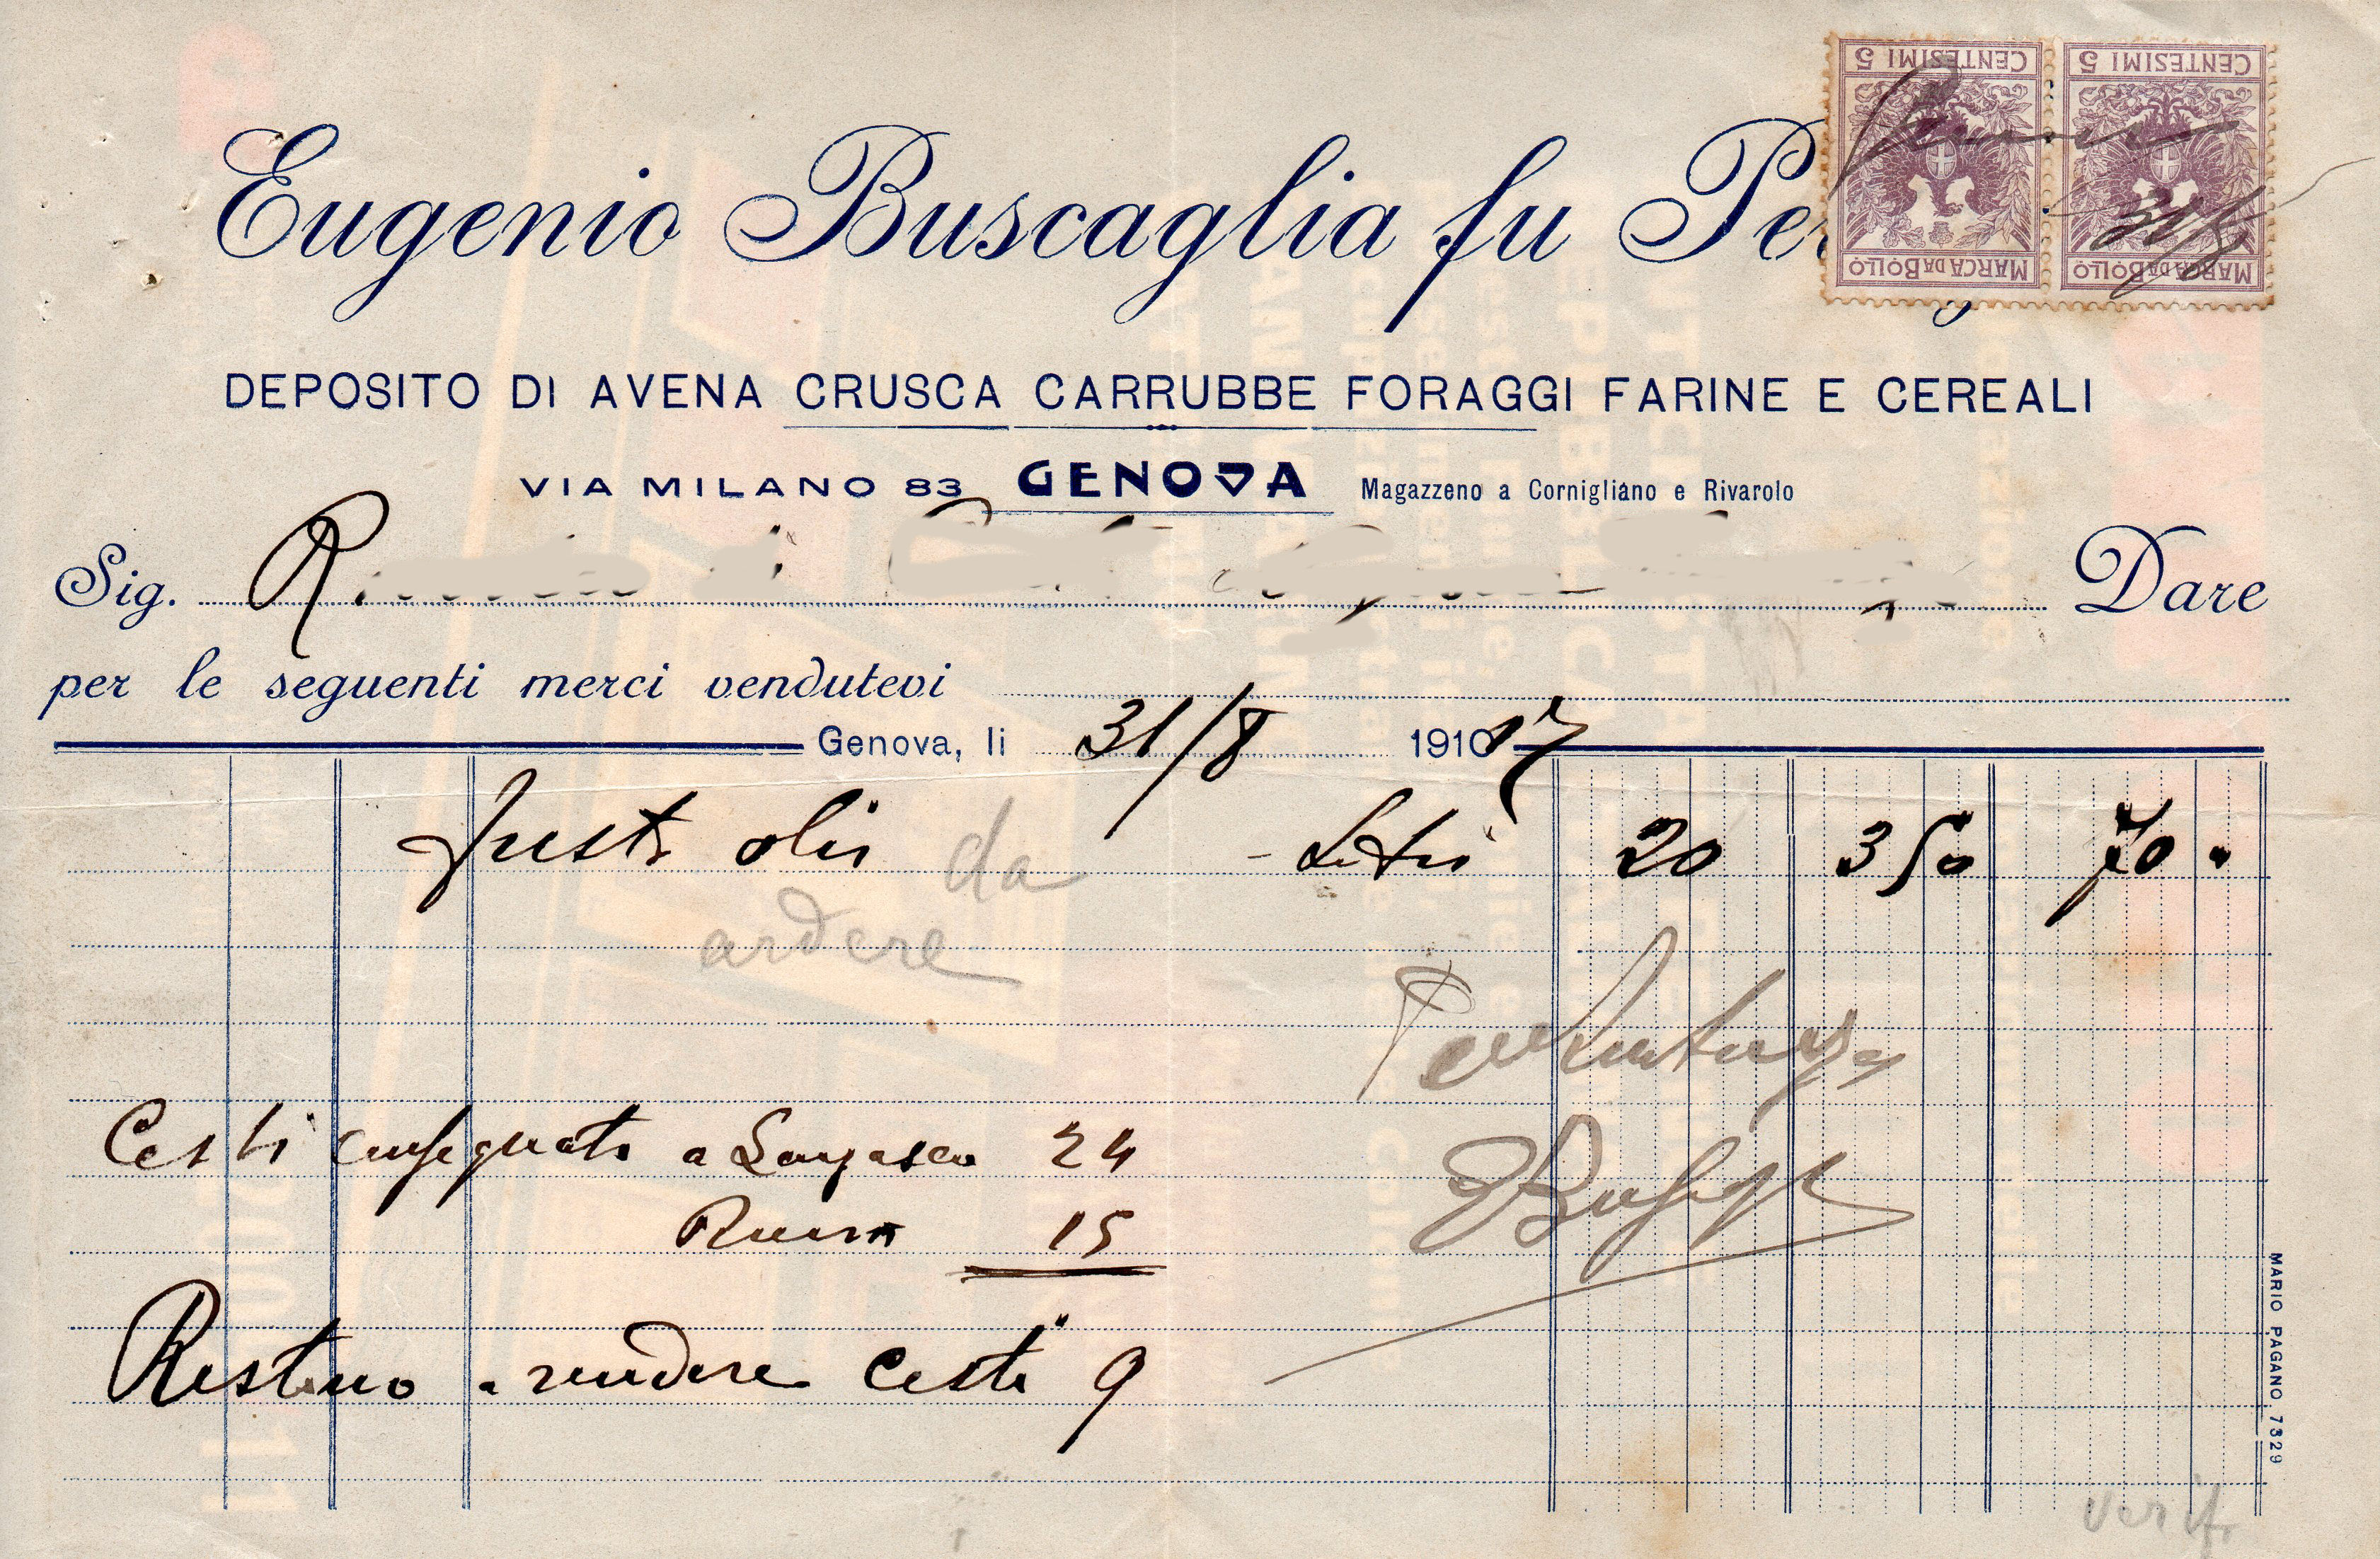 CENTESIMI 5 CENTESIMI 5
MARCA DA BOLLO MARCA DA BOLLO
31/8
Eugenio Buscaglia fu
DEPOSITO DI AVENA CRUSCA CARRUBBE FORAGGI FARINE E CEREALI
VIA MILANO 83 GENOVA Magazzeno a Cornigliano e Rivarolo
Sig. Dare
per le seguenti merci vendutevi
Genova, li 31/8 191017
olio da Litri 20 3 50 70
ardere
Cesti consegnati a 24
15
Restano a rendere Cesti 9
MARIO PAGANO 7329
verif.